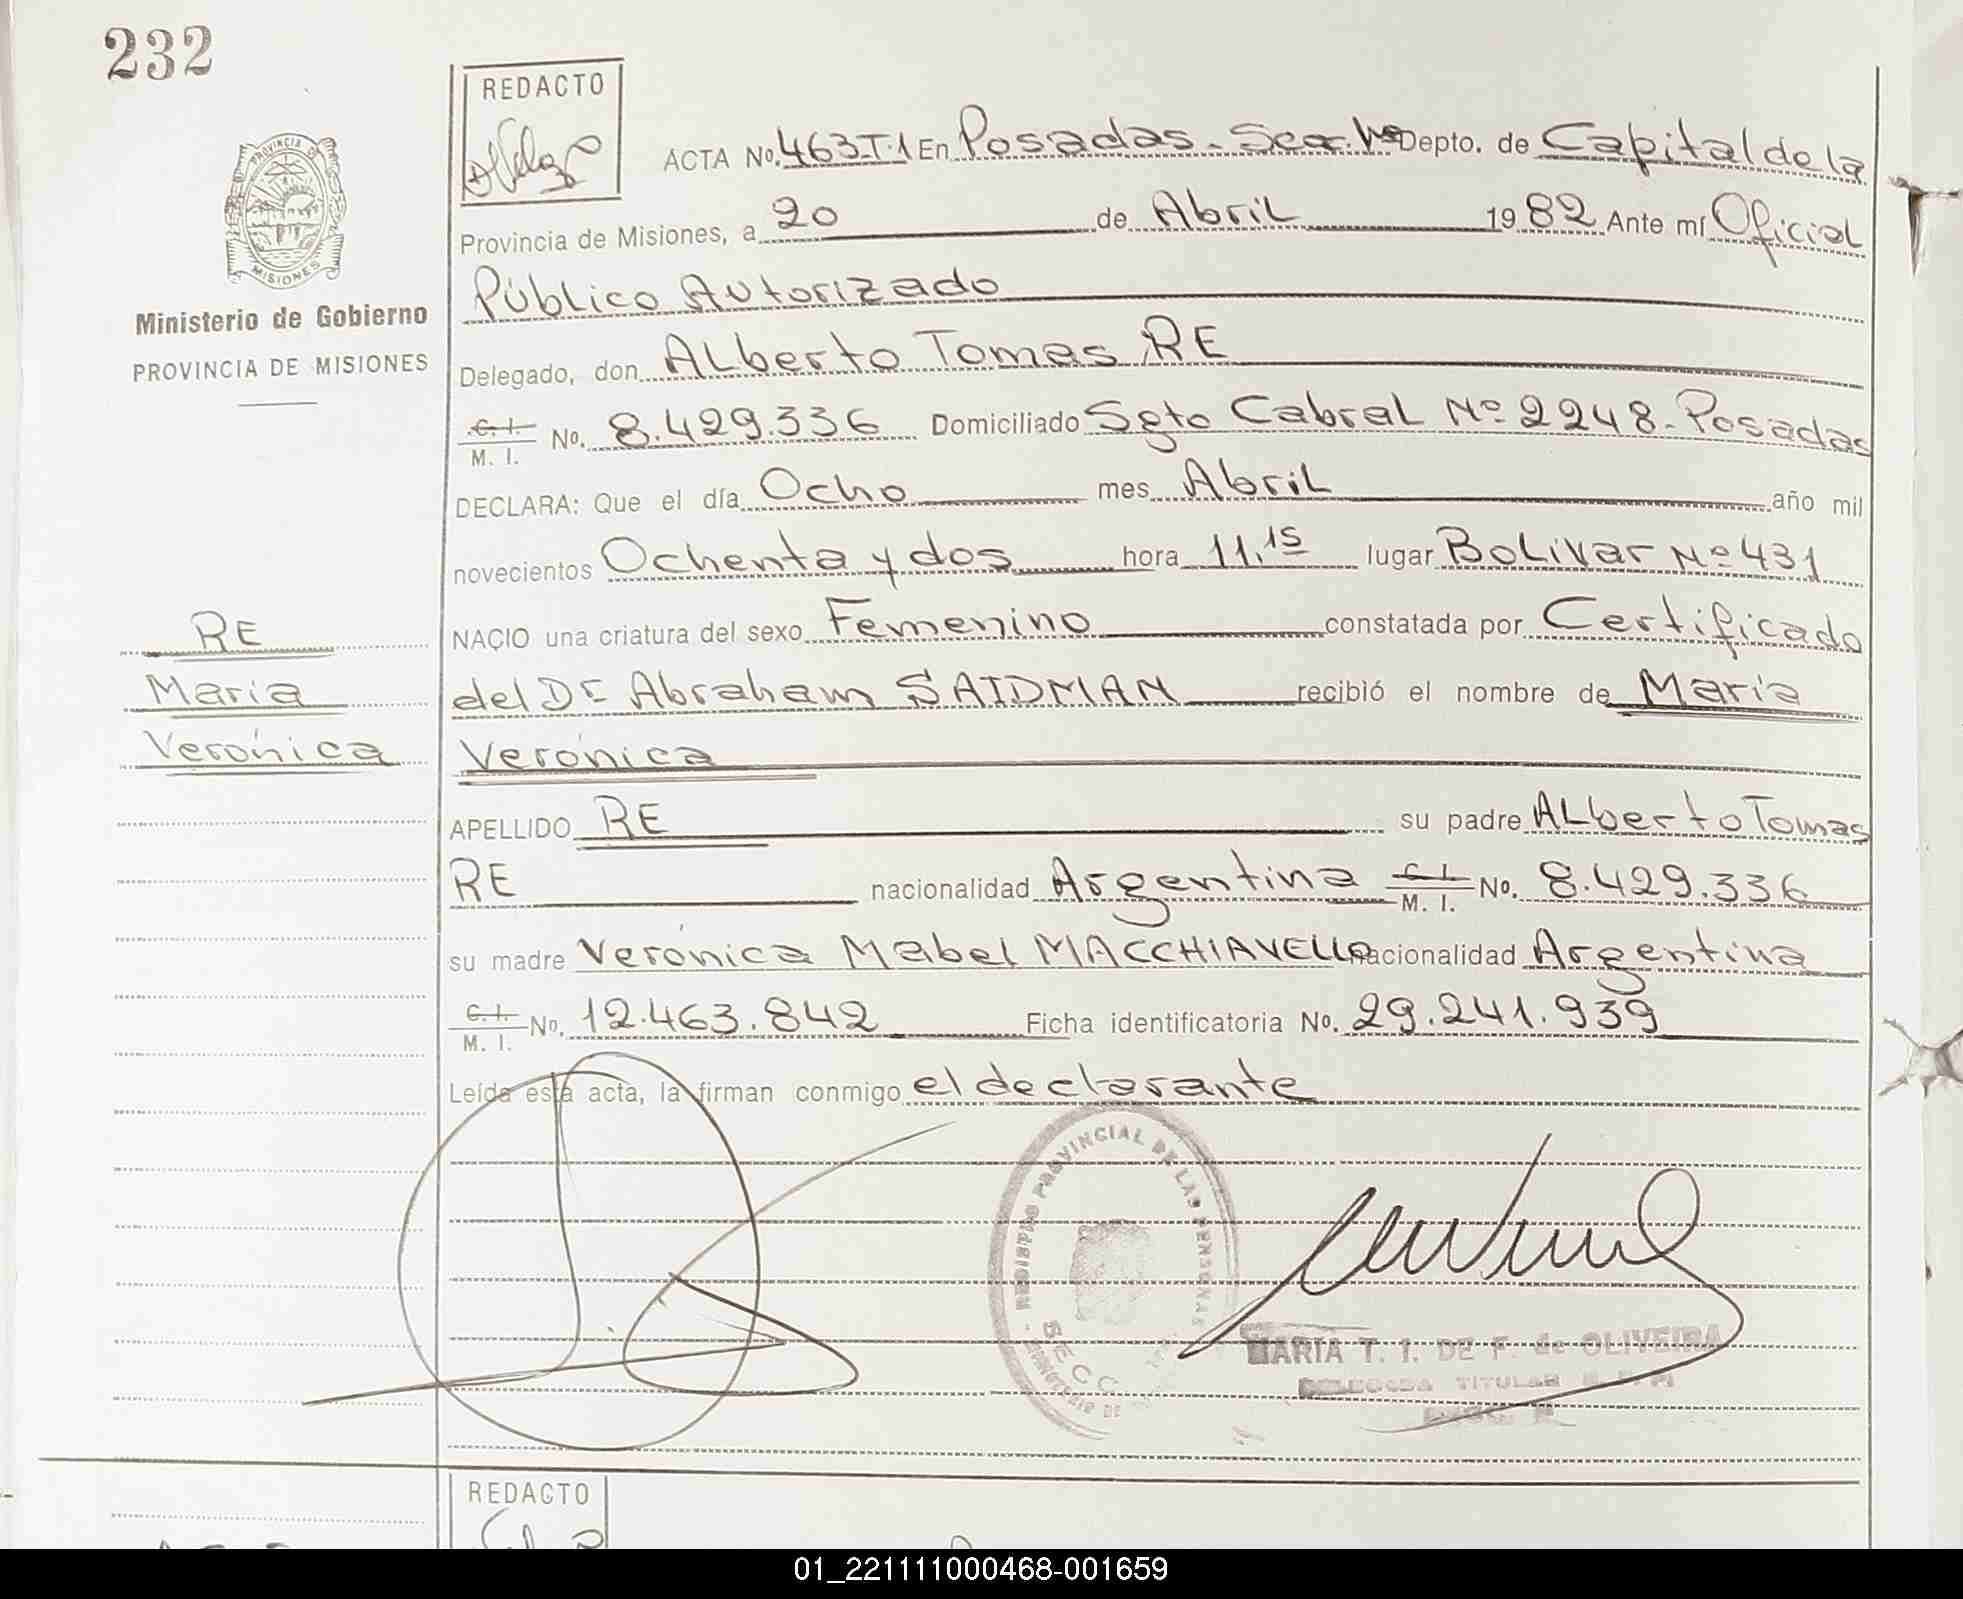 232
REDACTO
PROVINCIA DE
MISIONES
Ministerio de Gobierno
PROVINCIA DE MISIONES
ACTA No. 463T.1 En Posadas - Sec. Depto. de Capital de la
Provincia de Misiones, a 20 de Abril 1982 Ante mí Oficial
Público Autorizado
Delegado, don ALberto Tomas RE
C. I. M. I. No. 8.429.336 Domiciliado Sgto Cabral Nº 2248. Posadas
DECLARA: Que el día Ocho mes Abril año mil
novecientos Ochenta y dos hora 11.15 lugar BoLivar Nº 431
RE
NACIO una criatura del sexo Femenino constatada por Certificado
María
del Dr Abraham SAIDMAN recibió el nombre de María
Verónica
Verónica
APELLIDO RE su padre ALberto Tomas
RE nacionalidad Argentina C. I. M. I. No. 8.429.336
su madre Verónica Mabel MACCHIAVELLO nacionalidad Argentina
C. I. M. I. No. 12.463.842 Ficha identificatoria No. 29.241.939
Leída esta acta, la firman conmigo el declarante
REGISTRO PROVINCIAL DE LAS PERSONAS
MINISTERIO DE
SECC
MARIA T. I. DE F. de OLIVEIRA
DELEGADA TITULAR
REDACTO
01_221111000468-001659